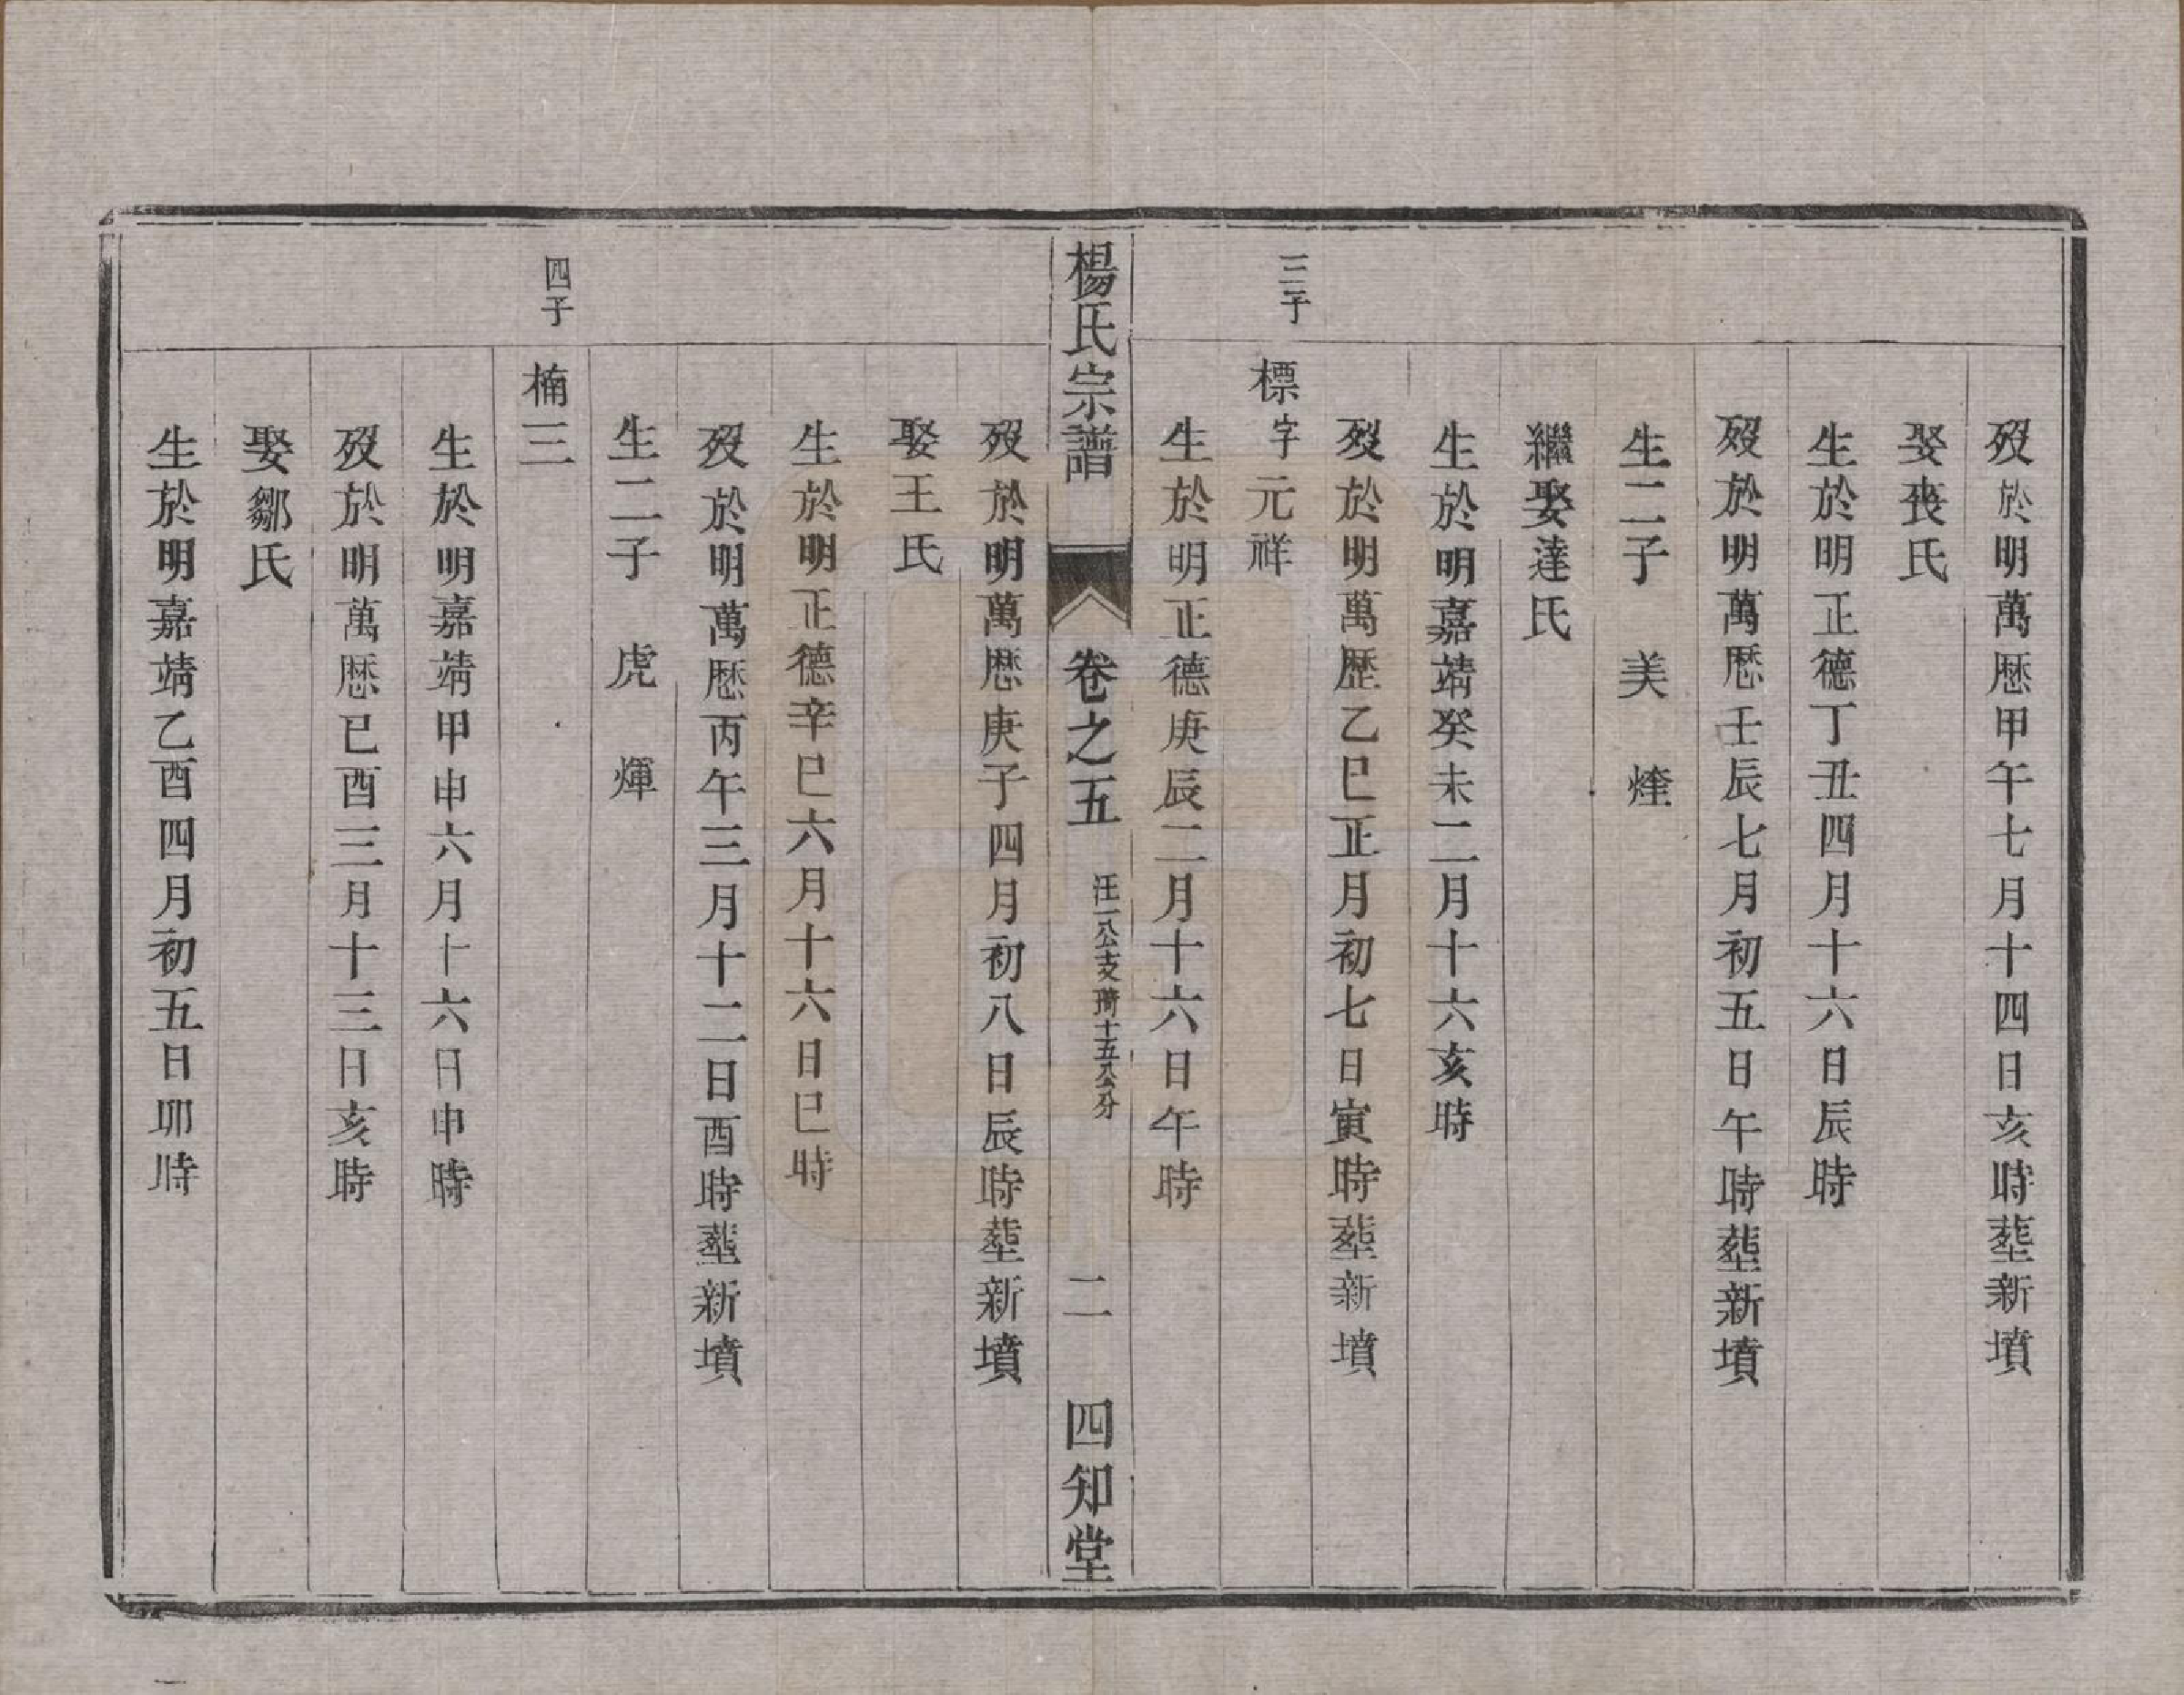 歿於明萬厯甲午七月十四日亥時塟新墳
娶喪氏
生於明正德丁丑四月十六日辰時
歿於明萬厯壬辰七月初五日午時塟新墳
生二子 美 煃
繼娶達氏
生於明嘉靖癸未二月十六亥時
歿於明萬歷乙巳正月初七日寅時塟新墳
三子
標字元祥
生於明正德庚辰二月十六日午時
楊氏宗譜 卷之五 汪一公支琦十五公分 二 四知堂
歿於明萬厯庚子四月初八日辰時塟新墳
娶王氏
生於明正德辛巳六月十六日巳時
歿於明萬厯丙午三月十二日酉時塟新墳
生二子 虎 煇
四子
楠三
生於明嘉靖甲申六月十六日申時
歿於明萬厯已酉三月十三日亥時
娶鄒氏
生於明嘉靖乙酉四月初五日卯時